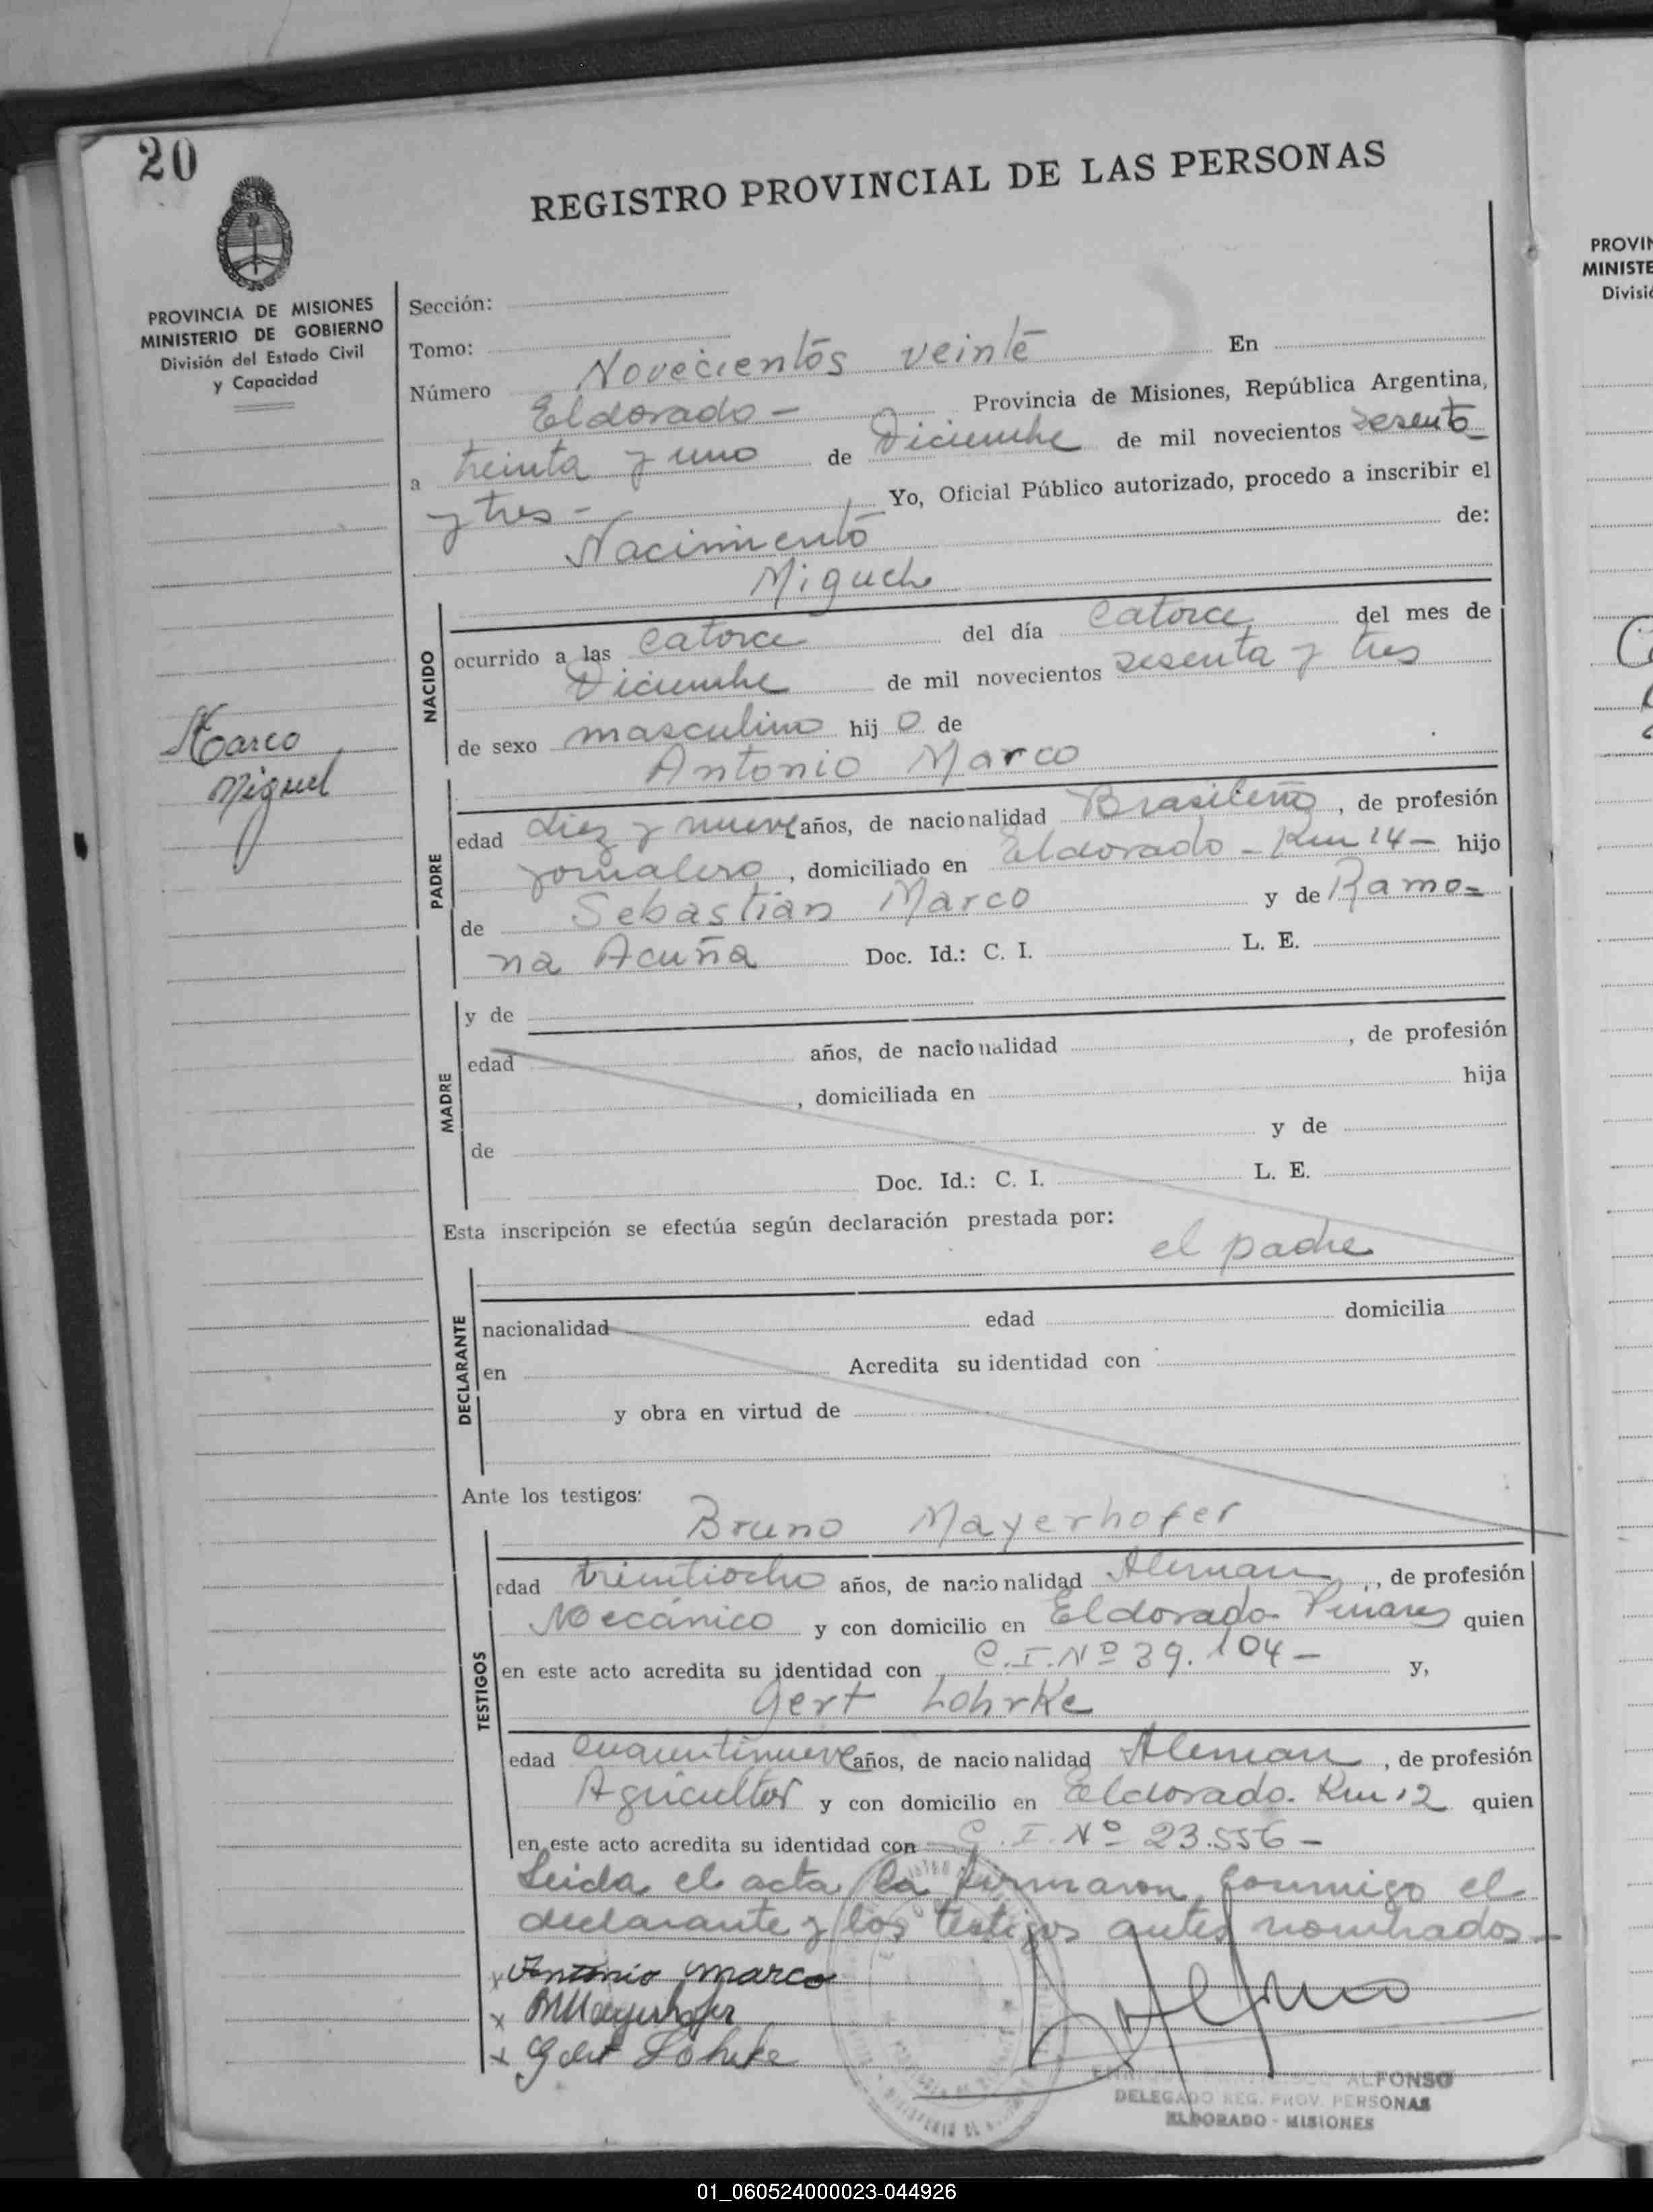 20
REGISTRO PROVINCIAL DE LAS PERSONAS
PROVINCIA DE MISIONES
MINISTERIO DE GOBIERNO
División del Estado Civil
y Capacidad
Marco
Miguel
Sección:
Tomo:
Número Novecientos veinte En
Eldorado - Provincia de Misiones, República Argentina,
a treinta y uno de Diciembre de mil novecientos sesenta
y tres - Yo, Oficial Público autorizado, procedo a inscribir el
Nacimiento de:
Miguel
NACIDO
ocurrido a las catorce del día catorce del mes de
Diciembre de mil novecientos sesenta y tres
de sexo masculino hij o de
Antonio Marco
PADRE
edad diez y nueve años, de nacionalidad Brasileño, de profesión
jornalero, domiciliado en Eldorado - Km 14 - hijo
de Sebastián Marco y de Ramo=
na Acuña Doc. Id.: C. I. L. E.
MADRE
y de
edad años, de nacionalidad , de profesión
, domiciliada en hija
de y de
Doc. Id.: C. I. L. E.
Esta inscripción se efectúa según declaración prestada por:
el padre
DECLARANTE
nacionalidad edad domicilia
en Acredita su identidad con
y obra en virtud de
Ante los testigos:
Bruno Mayerhofer
TESTIGOS
edad treintiocho años, de nacionalidad Aleman, de profesión
Mecánico y con domicilio en Eldorado - Pinares quien
en este acto acredita su identidad con C.I.Nº 39.104 - y,
Gert Lohrke
edad cuarentinueve años, de nacionalidad Aleman, de profesión
Agricultor y con domicilio en Eldorado. Km 12 quien
en este acto acredita su identidad con C.I.Nº 23.556 -
Leida el acta la firmaron conmigo el
declarante y los testigos antes nombrados -
x Antonio Marco
x BMayerhofer
x Gert Lohrke
ALFONSO
DELEGADO REG. PROV. PERSONAS
ELDORADO - MISIONES
PROVIN
MINISTE
Divisió
01_060524000023-044926